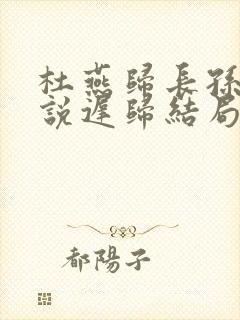 杜燕歸長孫
說遲歸結局
都陽子